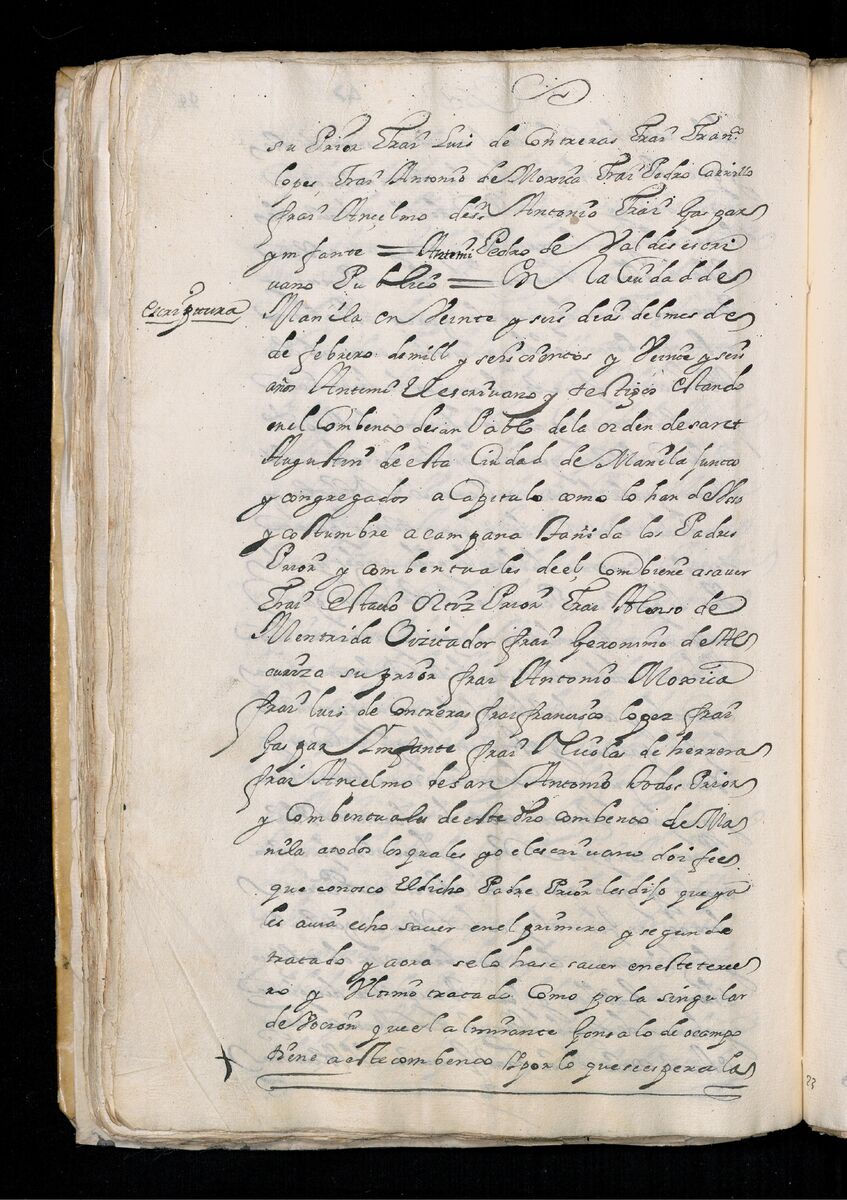 su Prior Frai Luis de Contreras Frai Fran.co
lopes Frai Antonio de Moxica Frai Pedro Carrillo
frai Ançelmo de sn Antonio Frai Gaspar
ynfante = Antemi Pedro de Valdes escri
vano Publico = En la Ciudad de
escriptura
Manila en Veinte y seis dias del mes de
de febrero de mill y seiscientos y Veinte y seis
años Antemi El escrivano y testigos estando
en el Combento de san Pablo de la orden de sanct
Augustin de esta Ciudad de Manila junto
y congregados a Capitulo como lo han de Uso
y costumbre a campana tañida los Padres
Prior y combentuales de el Combiene a saver
Frai Estacio Ortiz Prior Frai Alonso de
Mentrida Vizitador frai Geronimo de Al
su prior frai Antonio Moxica
frai luis de Contreras frai francisco lopez frai
Gaspar Ynfante frai Nicolas de herrera
frai Ancelmo de san Antonio todos Prior
y Combentuales de este dho combento de Ma
nila a todos los quales yo el escrivano doi fee
que conosco El dicho Padre Prior les dijo que ya
les avia echo saver en el primero y segundo
tratado y aora se lo hase saver en este terce
ro y Ultimo tratado Como por la singular
devocion que el almirante Gonsalo de ocampo
tiene a este combento Y por lo que se espera la
23